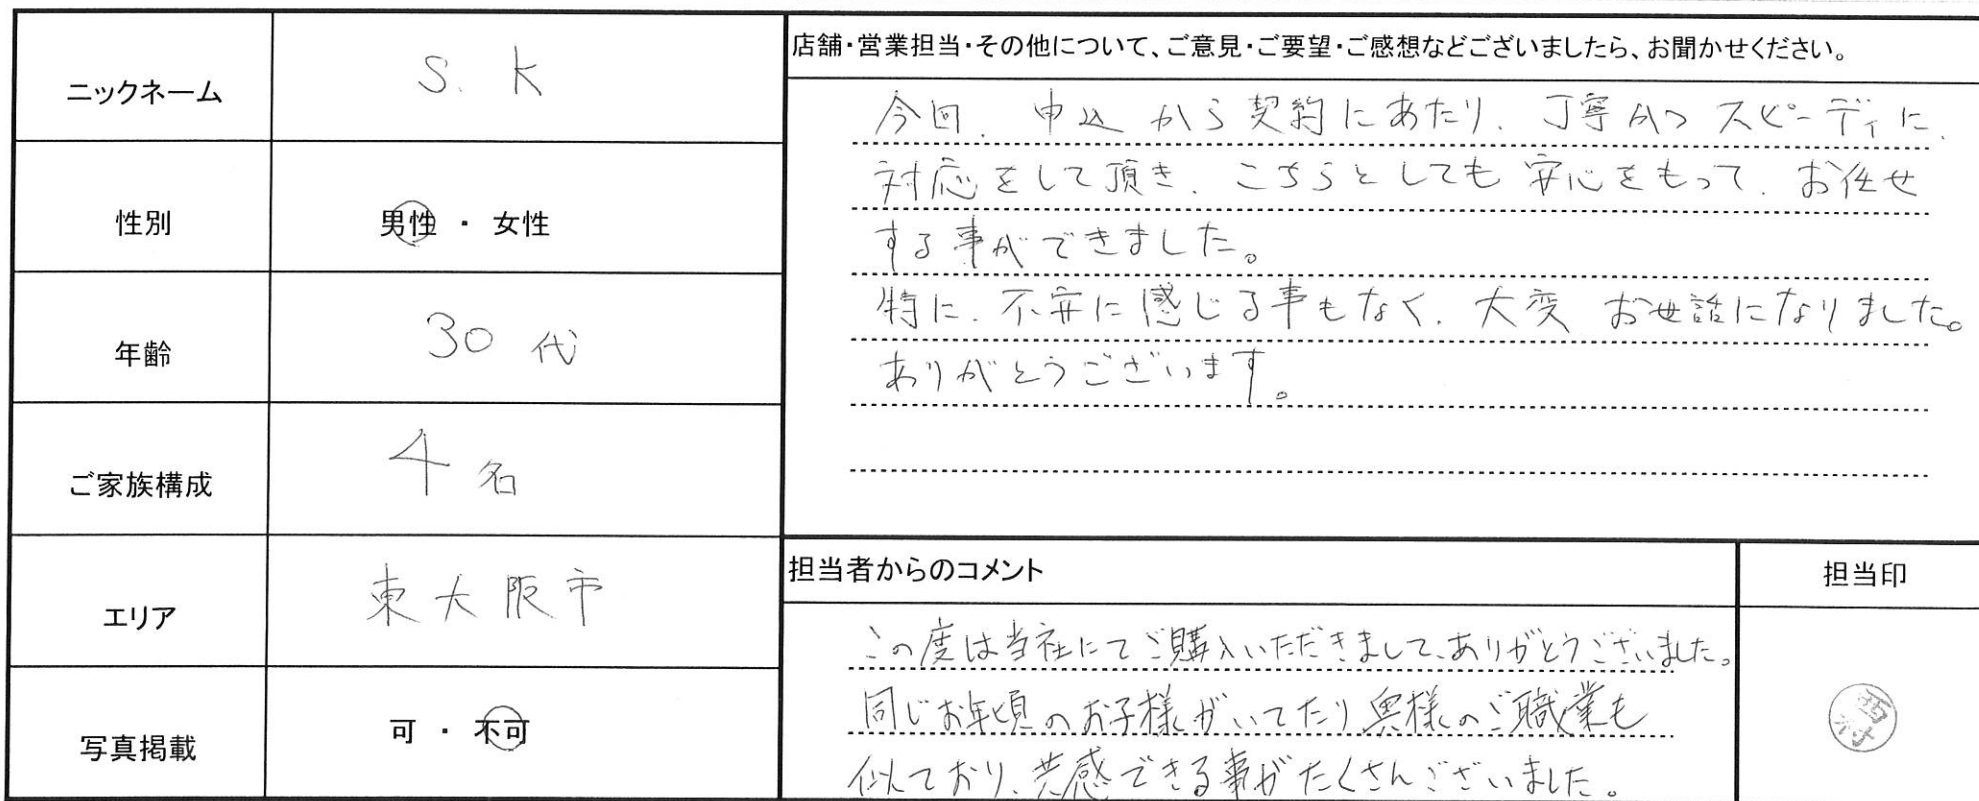 ニックネーム
S. K
性別
男性 ・ 女性
年齢
30 代
ご家族構成
4 名
エリア
東大阪市
写真掲載
可 ・ 不可
店舗・営業担当・その他について、ご意見・ご要望・ご感想などございましたら、お聞かせください。
今回、申込から契約にあたり、丁寧かつスピーディに、
対応をして頂き、こちらとしても安心をもって、お任せ
する事ができました。
特に、不安に感じる事もなく、大変お世話になりました。
ありがとうございます。
担当者からのコメント
この度は当社にてご購入いただきまして、ありがとうございました。
同じお年頃のお子様がいてたり奥様のご職業も
似ており、共感できる事がたくさんございました。
担当印
西村